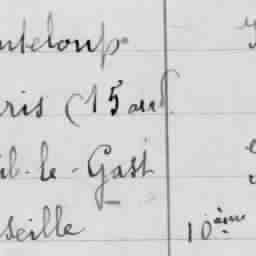 nteloup
ris (15 arr
il-le-Gast
seille 10ème